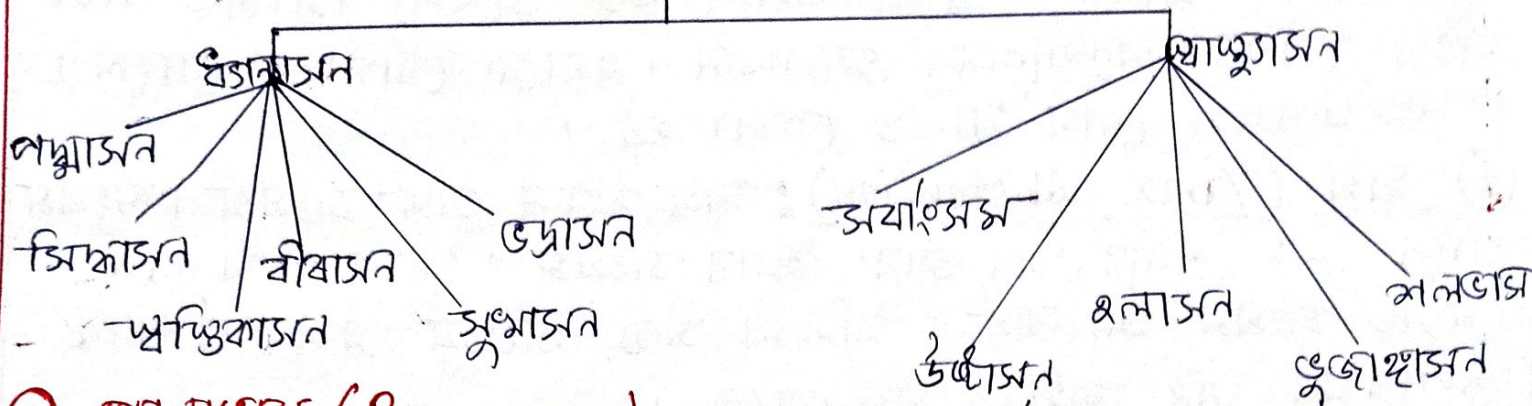 ধ্যানাসন স্বাস্থ্যাসন
পদ্মাসন
সিদ্ধাসন
স্বস্তিকাসন
বীৰাসন
সুখাসন
ভদ্ৰাসন
সৰ্বাংসন
উষ্ট্ৰাসন
হলাসন
ভুজাঙ্গাসন
শলভাস